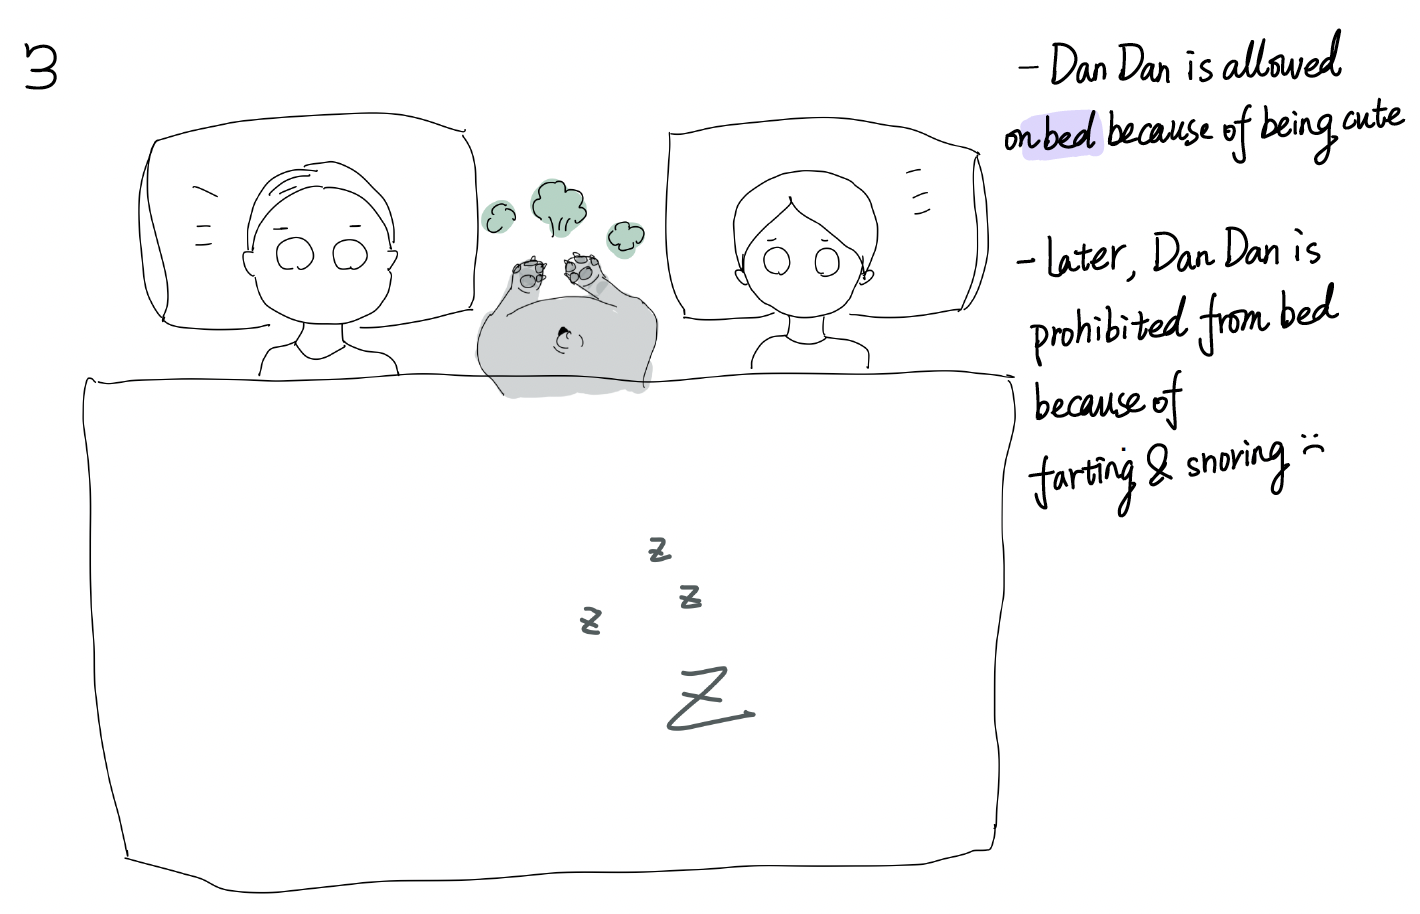 3
- Dan Dan is allowed
on bed because of being cute
- Later, Dan Dan is
prohibited from bed
because of
farting & snoring :(
z
z
z
Z